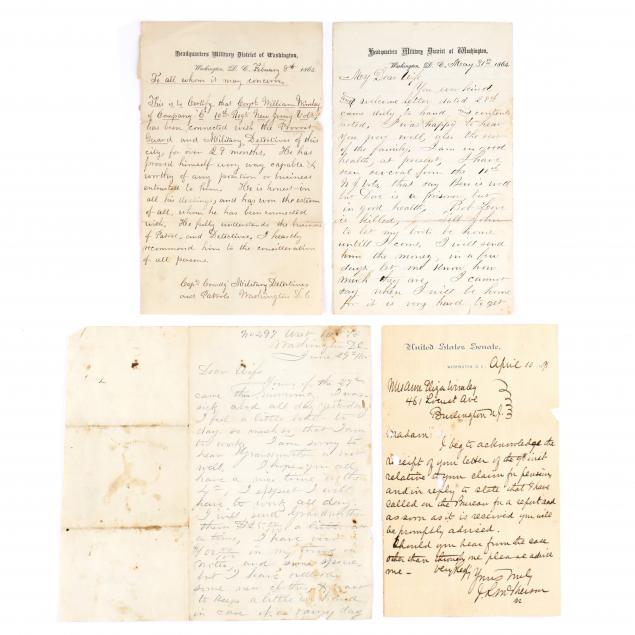 Headquarters Military District of Washington,
Washington, D. C. February 9th 1865
To all whom it may concern
This is to Certify that Corpl William Wimley
of Company "C" 10th Regt New Jersey Vols
has been connected with the Provost
Guard and Military Detectives of this
city, for over 27 months. He has
proved himself very capable &
worthy of any position or business
entrusted to him. He is honest in
all his dealings and has won the esteem
of all, whom he has been connected
with. He fully understands the business
of Patrol and Detectives, I heartily
recommend him to the consideration
of all persons.
Capt Comdg Military Detectives
and Patrols Washington D.C.
Headquarters Military District of Washington,
Washington, D. C. May 31st 1864
My Dear Wife
Your kind
& welcome letter dated 28th
came duly to hand & contents
noted, I was happy to hear
you very well, also the rest
of the family. I am in good
health, at present, I have
seen several from the 10th
N.J. Vols that say Ben is well
is a prisoner but
in good health, Bob
is killed, tell John
to let my boots be home
untill I come, I will send
him the money, in a few
days let me know how
much they are. I cannot
say when I will be home
for it is very hard to get
No 297 West
Washington D.C.
June 29th
Dear Wife
Yours of the 27th
came this morning, I was
sick abed all day yesterday
I feel a little better to
day so much so that I am
to work, I am sorry to
hear Grandmother is not
well, I hope you all
have a nice time on the
4th, I expect I will
have to work all day.
I will send Grandmother
them $25 a little
a time, I have
in my
Notes, and some specie,
but I have
some new clothes & I want
to keep a little in hand
in case of a rainy day
United States Senate,
WASHINGTON, D. C., April 10
Mrs Anne Eliza Wimley
461 Locust Ave
Burlington N.J.
Madam:
I beg to acknowledge the
receipt of your letter of the 9th inst
relative to your claim for pension,
and in reply to state that I have
called on the Bureau for a report and
as soon as it is received you will
be promptly advised.
Should you hear from the case
other than through me please advise
me –
Yours truly
J R McPherson